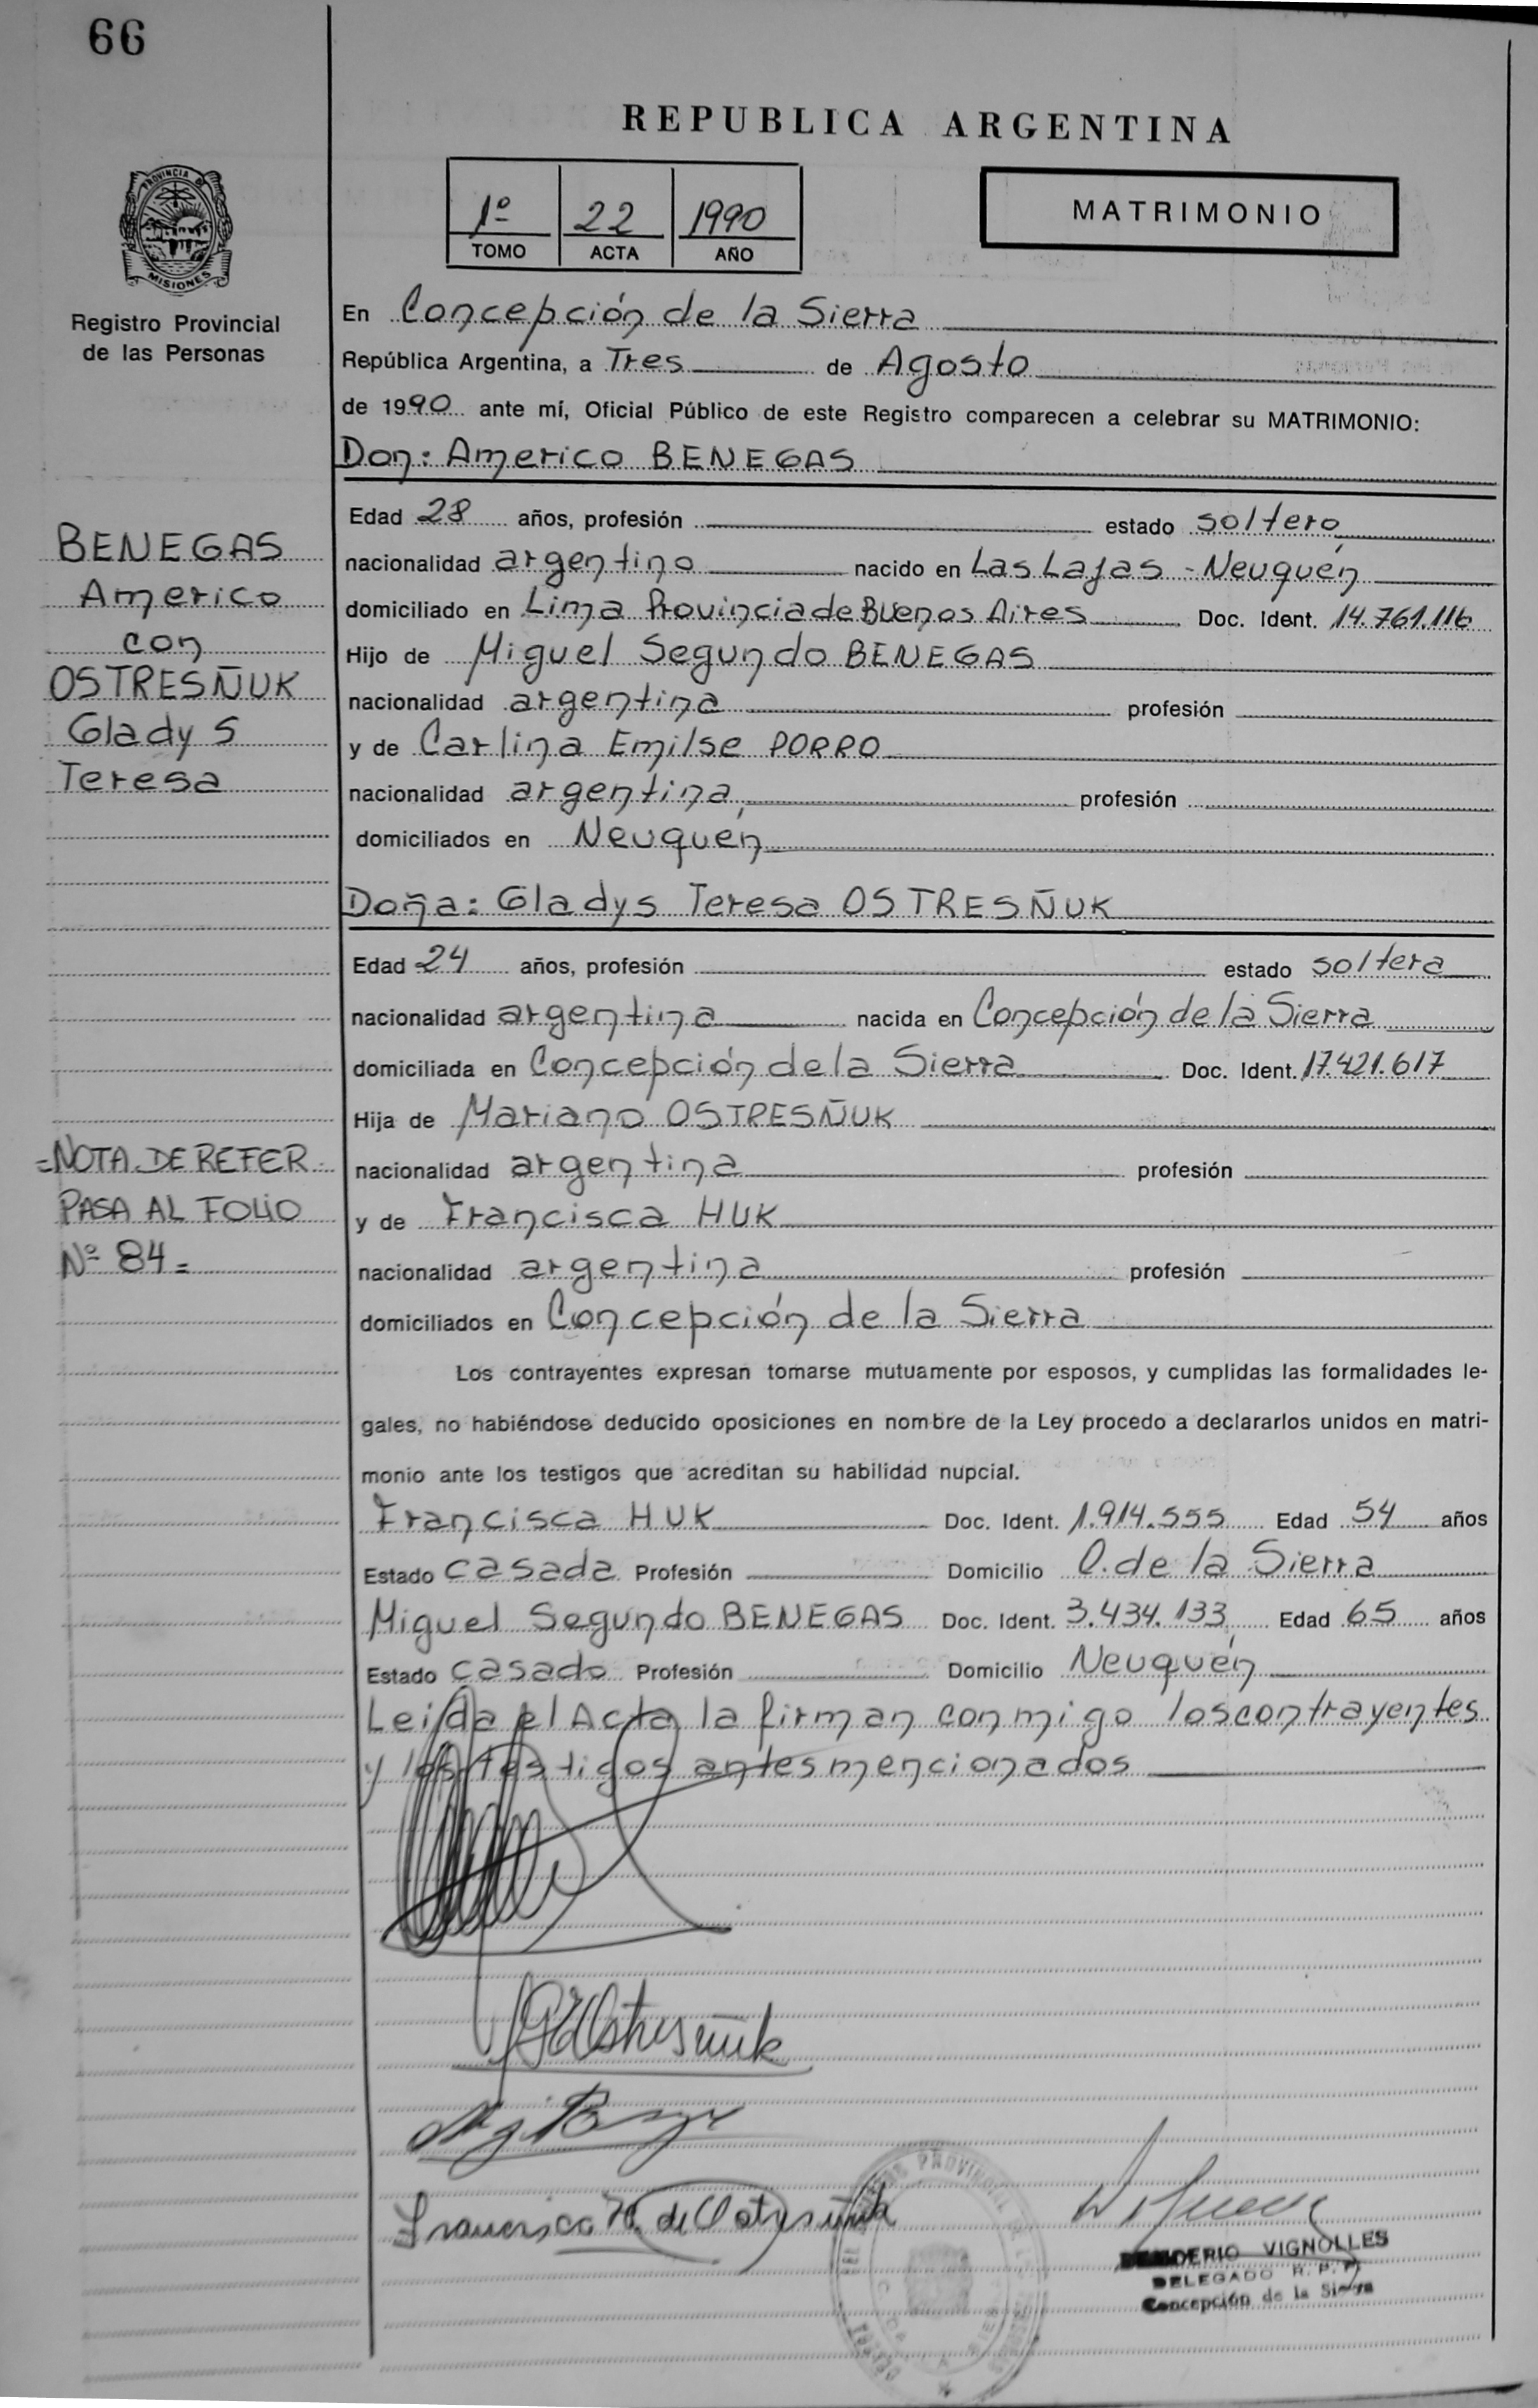 66
REPUBLICA ARGENTINA
PROVINCIA DE
MISIONES
Registro Provincial
de las Personas
1º 22 1990
TOMO ACTA AÑO
MATRIMONIO
En Concepción de la Sierra
República Argentina, a Tres de Agosto
de 1990 ante mí, Oficial Público de este Registro comparecen a celebrar su MATRIMONIO:
Don: Americo BENEGAS
Edad 28 años, profesión estado soltero
nacionalidad argentino nacido en Las Lajas - Neuquén
domiciliado en Lima Provincia de Buenos Aires Doc. Ident. 14.761.116
Hijo de Miguel Segundo BENEGAS
nacionalidad argentina profesión
y de Carlina Emilse PORRO
nacionalidad argentina profesión
domiciliados en Neuquén
Doña: Gladys Teresa OSTRESÑUK
Edad 24 años, profesión estado soltera
nacionalidad argentina nacida en Concepción de la Sierra
domiciliada en Concepción de la Sierra Doc. Ident. 17.421.617
Hija de Mariano OSTRESÑUK
nacionalidad argentina profesión
y de Francisca HUK
nacionalidad argentina profesión
domiciliados en Concepción de la Sierra
Los contrayentes expresan tomarse mutuamente por esposos, y cumplidas las formalidades le-
gales, no habiéndose deducido oposiciones en nombre de la Ley procedo a declararlos unidos en matri-
monio ante los testigos que acreditan su habilidad nupcial.
Francisca HUK Doc. Ident. 1.914.555 Edad 54 años
Estado casada Profesión Domicilio C. de la Sierra
Miguel Segundo BENEGAS Doc. Ident. 3.434.133 Edad 65 años
Estado casado Profesión Domicilio Neuquén
Leida el Acta la firman conmigo los contrayentes
y los testigos antes mencionados
BENEGAS
Americo
con
OSTRESÑUK
Gladys
Teresa
=NOTA DE REFER.
PASA AL FOLIO
Nº 84=
Ostresñuk
Francisca H. de Ostresñuk
VIGNOLLES
DELEGADO R. P. P.
Concepción de la Sierra